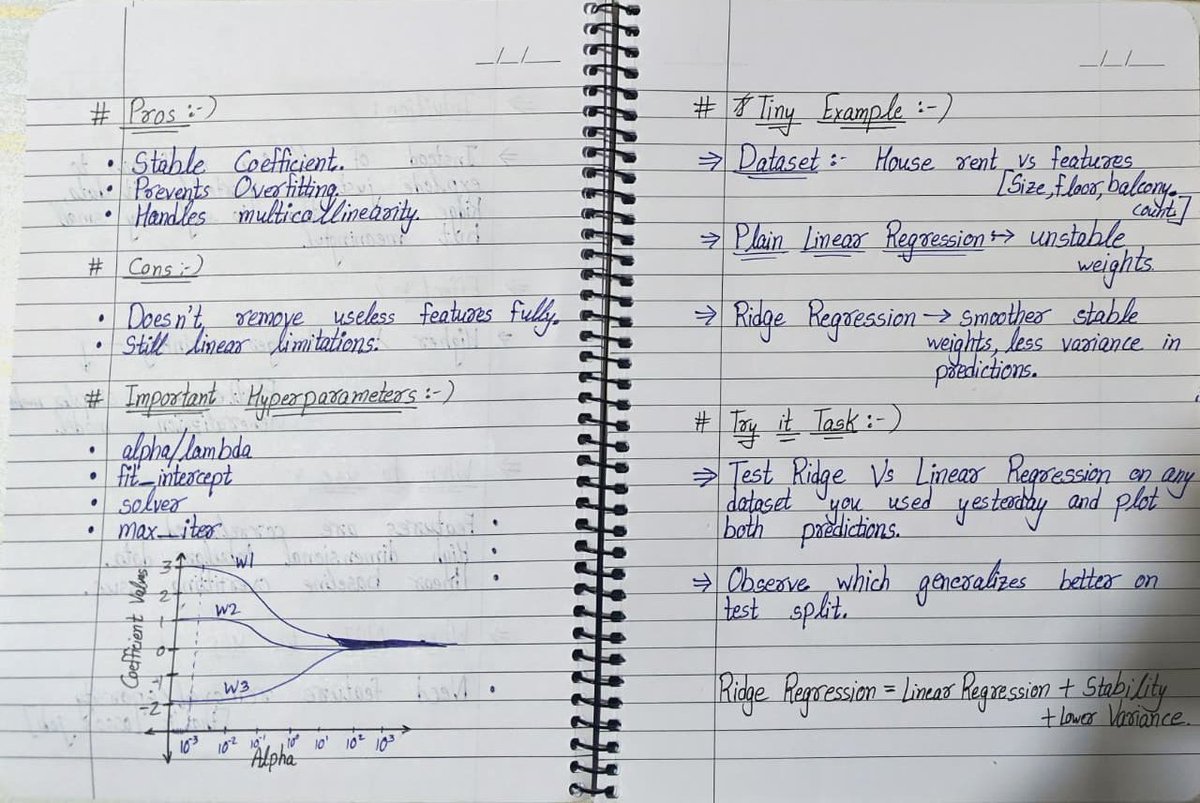 _/_/_
# Pros :-)
• Stable Coefficient.
• Prevents Overfitting.
• Handles multicollinearity.
# Cons :-)
• Doesn't remove useless features fully.
• Still linear limitations.
# Important Hyperparameters :-)
• alpha/lambda
• fit_intercept
• solver
• max_iter
Coefficient Values
3
2
1
0
-1
-2
W1
W2
W3
10⁻³ 10⁻² 10⁻¹ 10⁰ 10¹ 10² 10³
Alpha
_/_/_
# Tiny Example :-)
⇒ Dataset :- House rent vs features
[Size, floor, balcony.
count]
⇒ Plain Linear Regression ↔ unstable
weights.
⇒ Ridge Regression → smoother stable
weights, less variance in
predictions.
# Try it Task :-)
⇒ Test Ridge Vs Linear Regression on any
dataset you used yesterday and plot
both predictions.
⇒ Observe which generalizes better on
test split.
Ridge Regression = Linear Regression + Stability
+ Lower Variance.